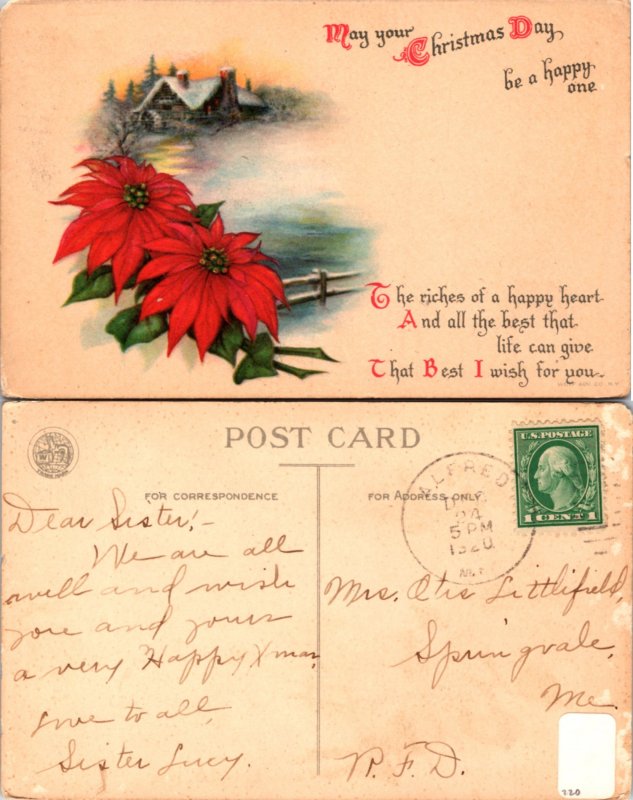 May your Christmas Day
be a happy
one
The riches of a happy heart
And all the best that
life can give
That Best I wish for you
POST CARD
FOR CORRESPONDENCE
FOR ADDRESS ONLY
ALFRED
24
5 PM
1920
U.S. POSTAGE
1 CENT 1
Dear Sister:-
We are all
well and wish
you and yours
a very Happy Xmas,
Love to all,
Sister Lucy.
Mrs. Otis Littlefield,
Springvale,
Me
R.F.D.
220